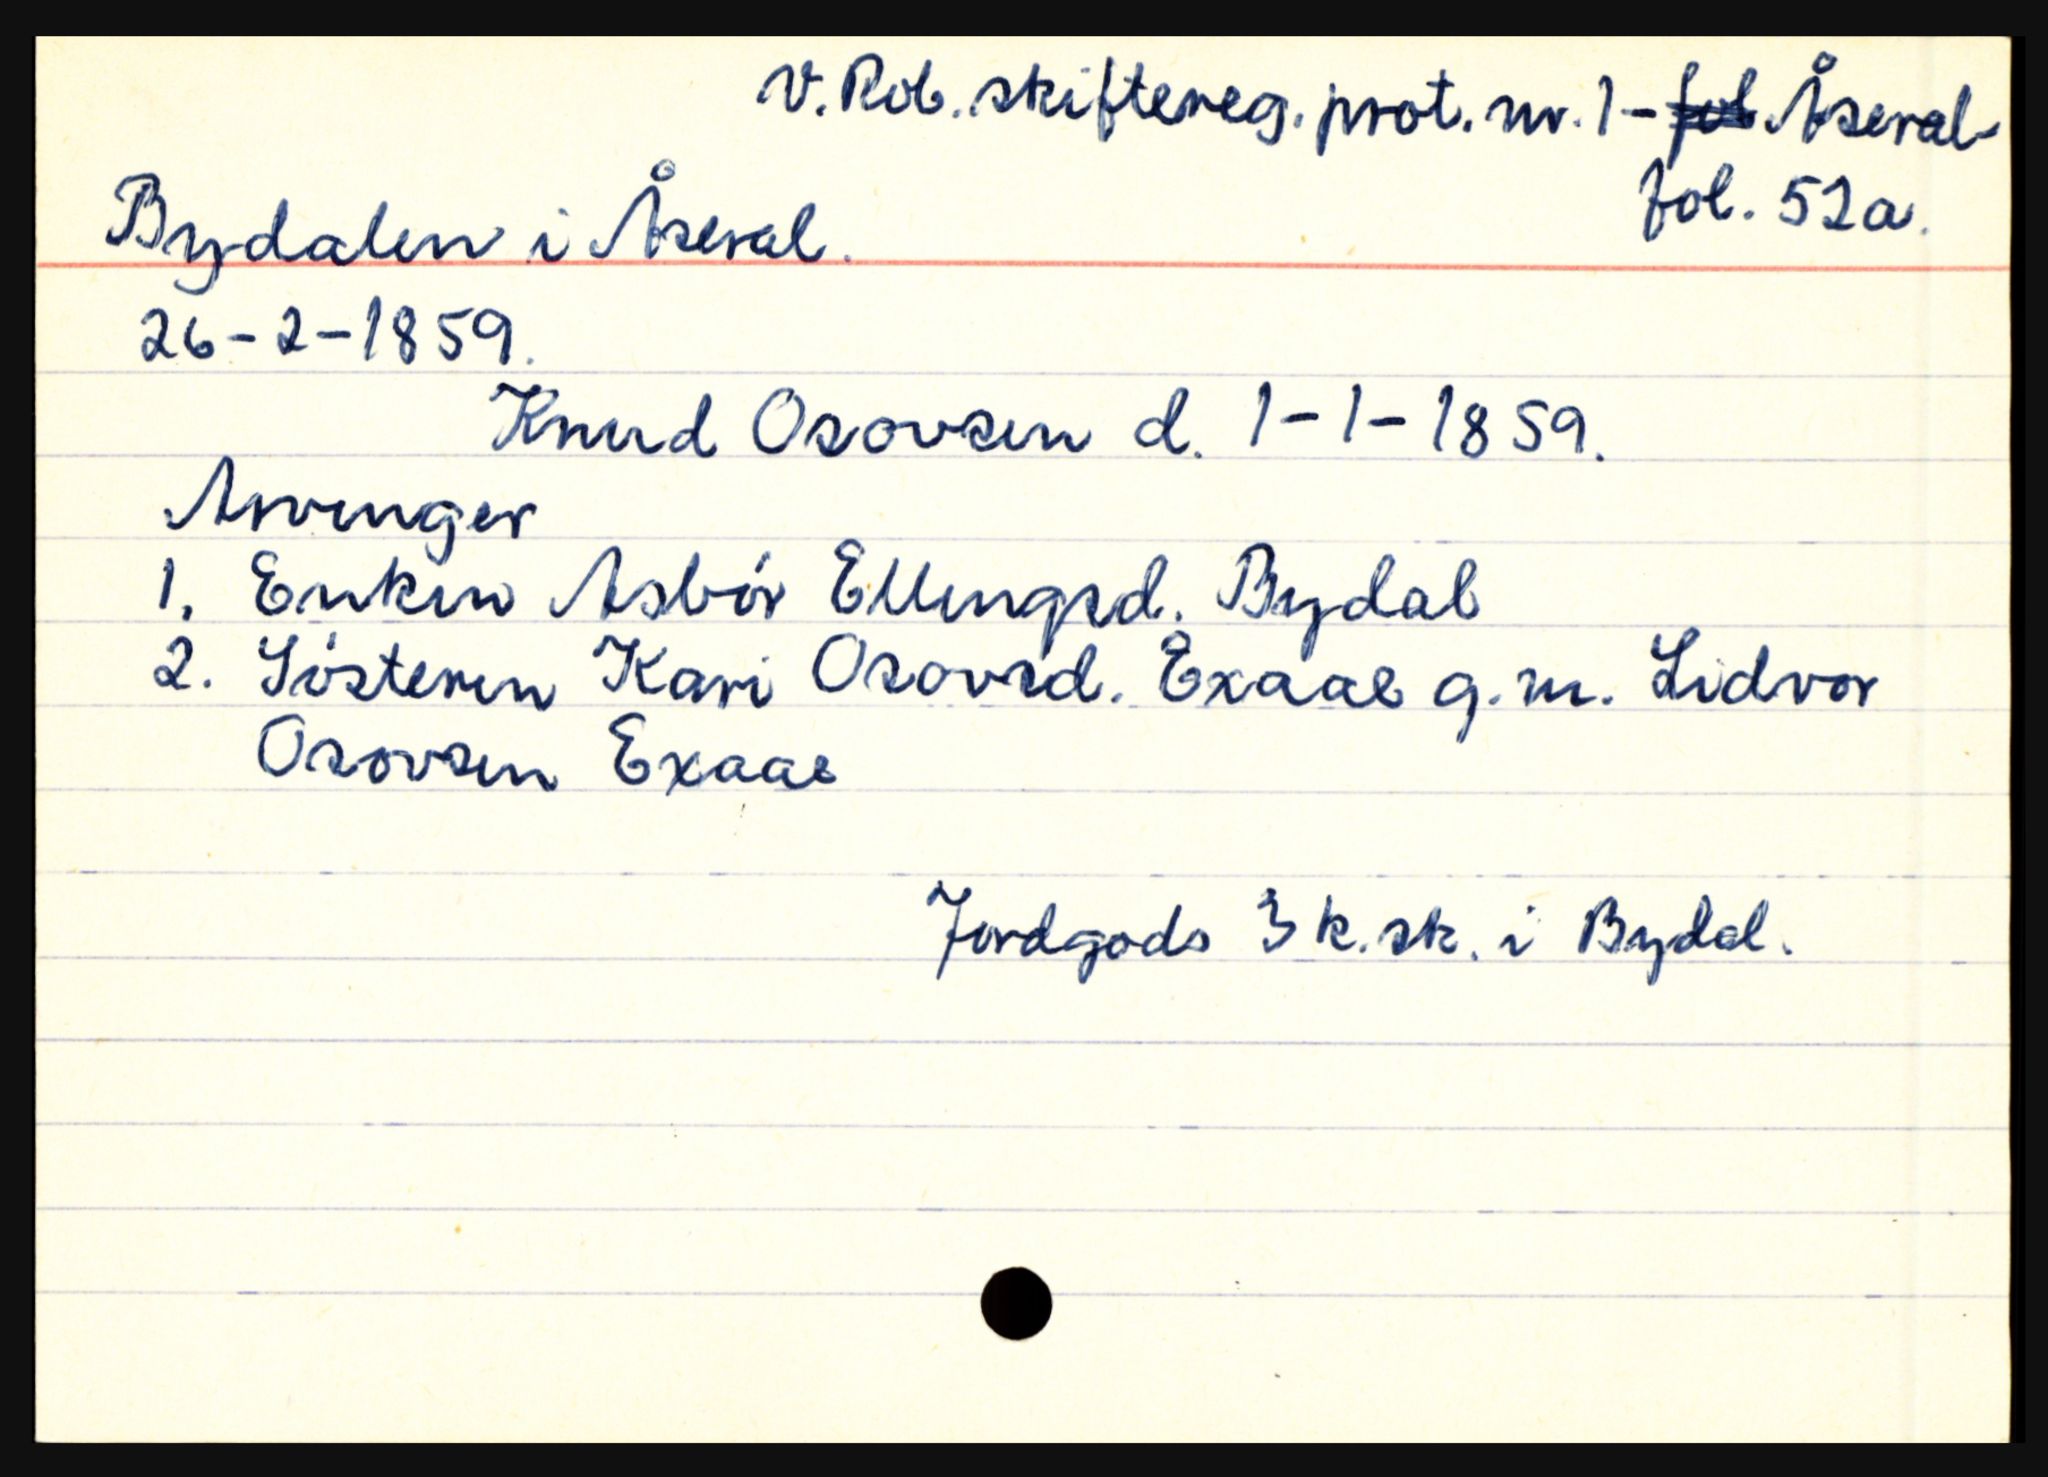 V. Rob. skiftereg. prot. nr. 1 - fol Åseral
fol. 52a.
Bydalen i Åseral.
26-2-1859.
Knud Osovsen d. 1-1-1859.
Arvinger
1. Enken Asbör Ellingsd. Bydal
2. Sösteren Kari Osovsd. Exaae g.m. Lidvor
Osovsen Exaae
Jordgods 3 k.sk. i Bydal.